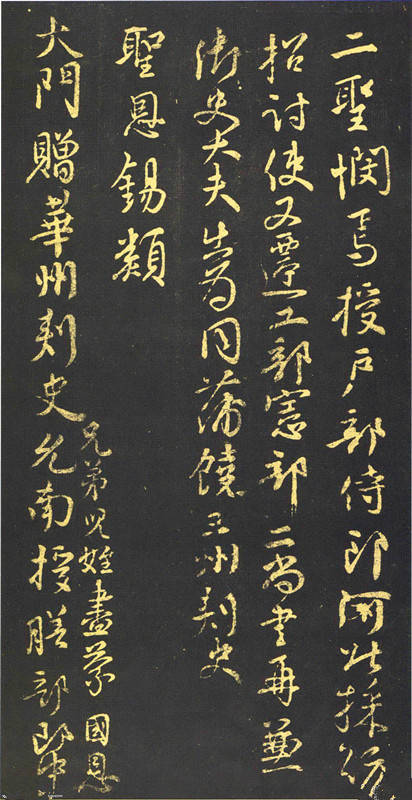 二聖憫焉授戶部侍郎河北採訪
招討使又遷工部憲部二尚書再兼
御史大夫出為同蒲饒三州刺史
聖恩錫類
兄弟兒姪盡蒙國恩
大門贈華州刺史允南授膳部郎中